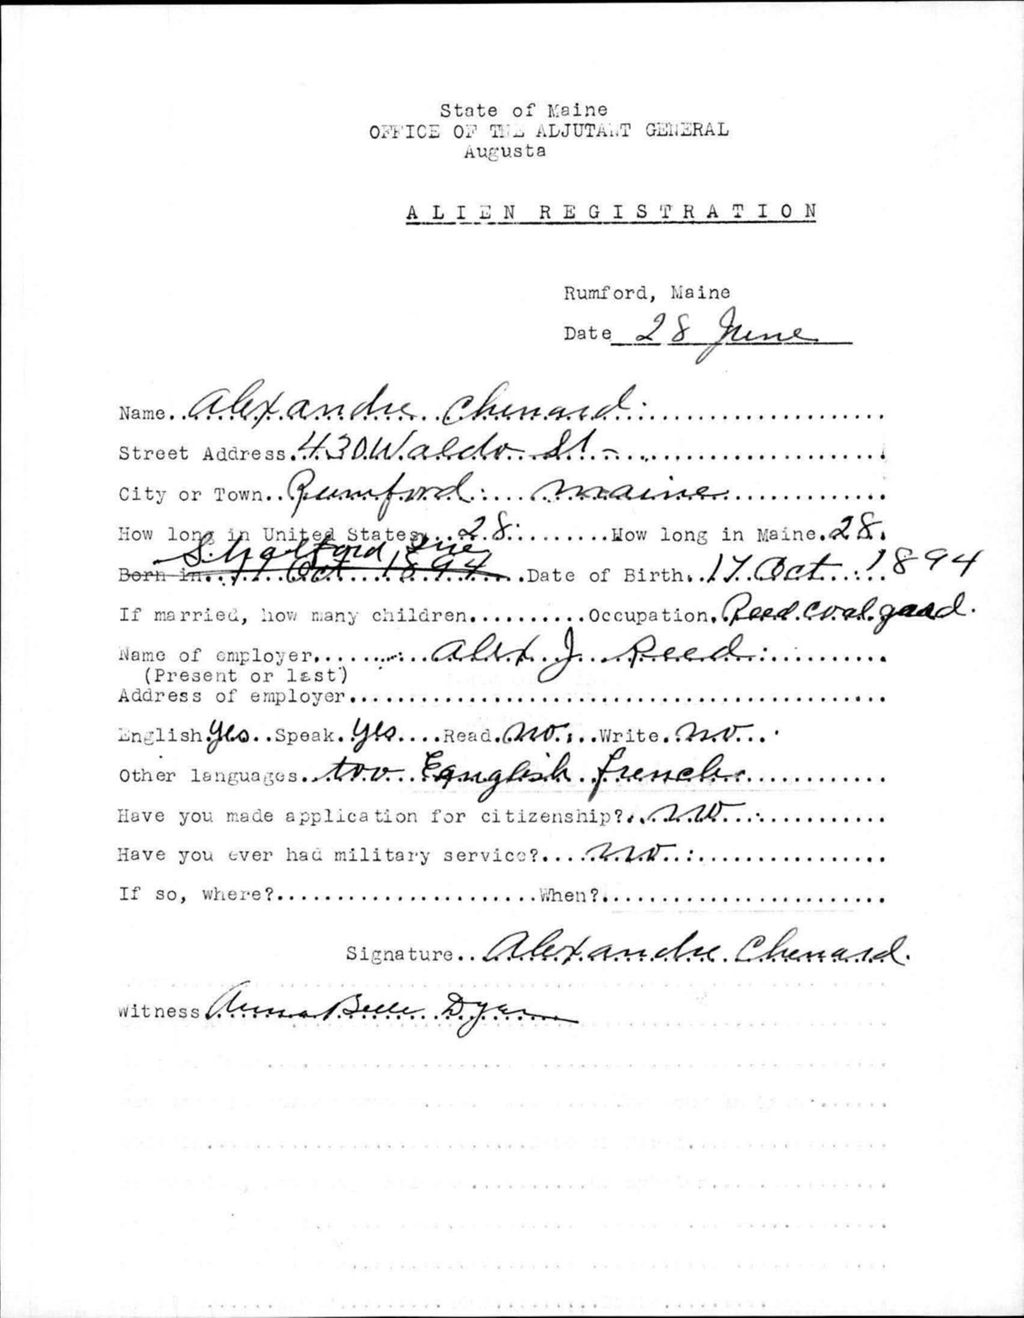 State of Maine
OFFICE OF THE ADJUTANT GENERAL
Augusta
ALIEN REGISTRATION
Rumford, Maine
Date 28 June
Name..Alexandre Chenard.....................
Street Address.430 Waldo St-.....................
City or Town..Rumford....Maine.............
How long in United States...28.........How long in Maine.28.
Born in 17 Oct 1894..Date of Birth.17 Oct...1894
If married, how many children..........Occupation.Reed coal
Name of employer.........Alex J. Reed...........
(Present or last)
Address of employer...................................
English.Yes..Speak.Yes....Read.No...Write.No...
Other languages..too Eqnglish french.............
Have you made application for citizenship?..No.............
Have you ever had military service?....No...................
If so, where?......................When?.......................
Signature..Alexandre Chenard.
Witness Anna Belle Dyer